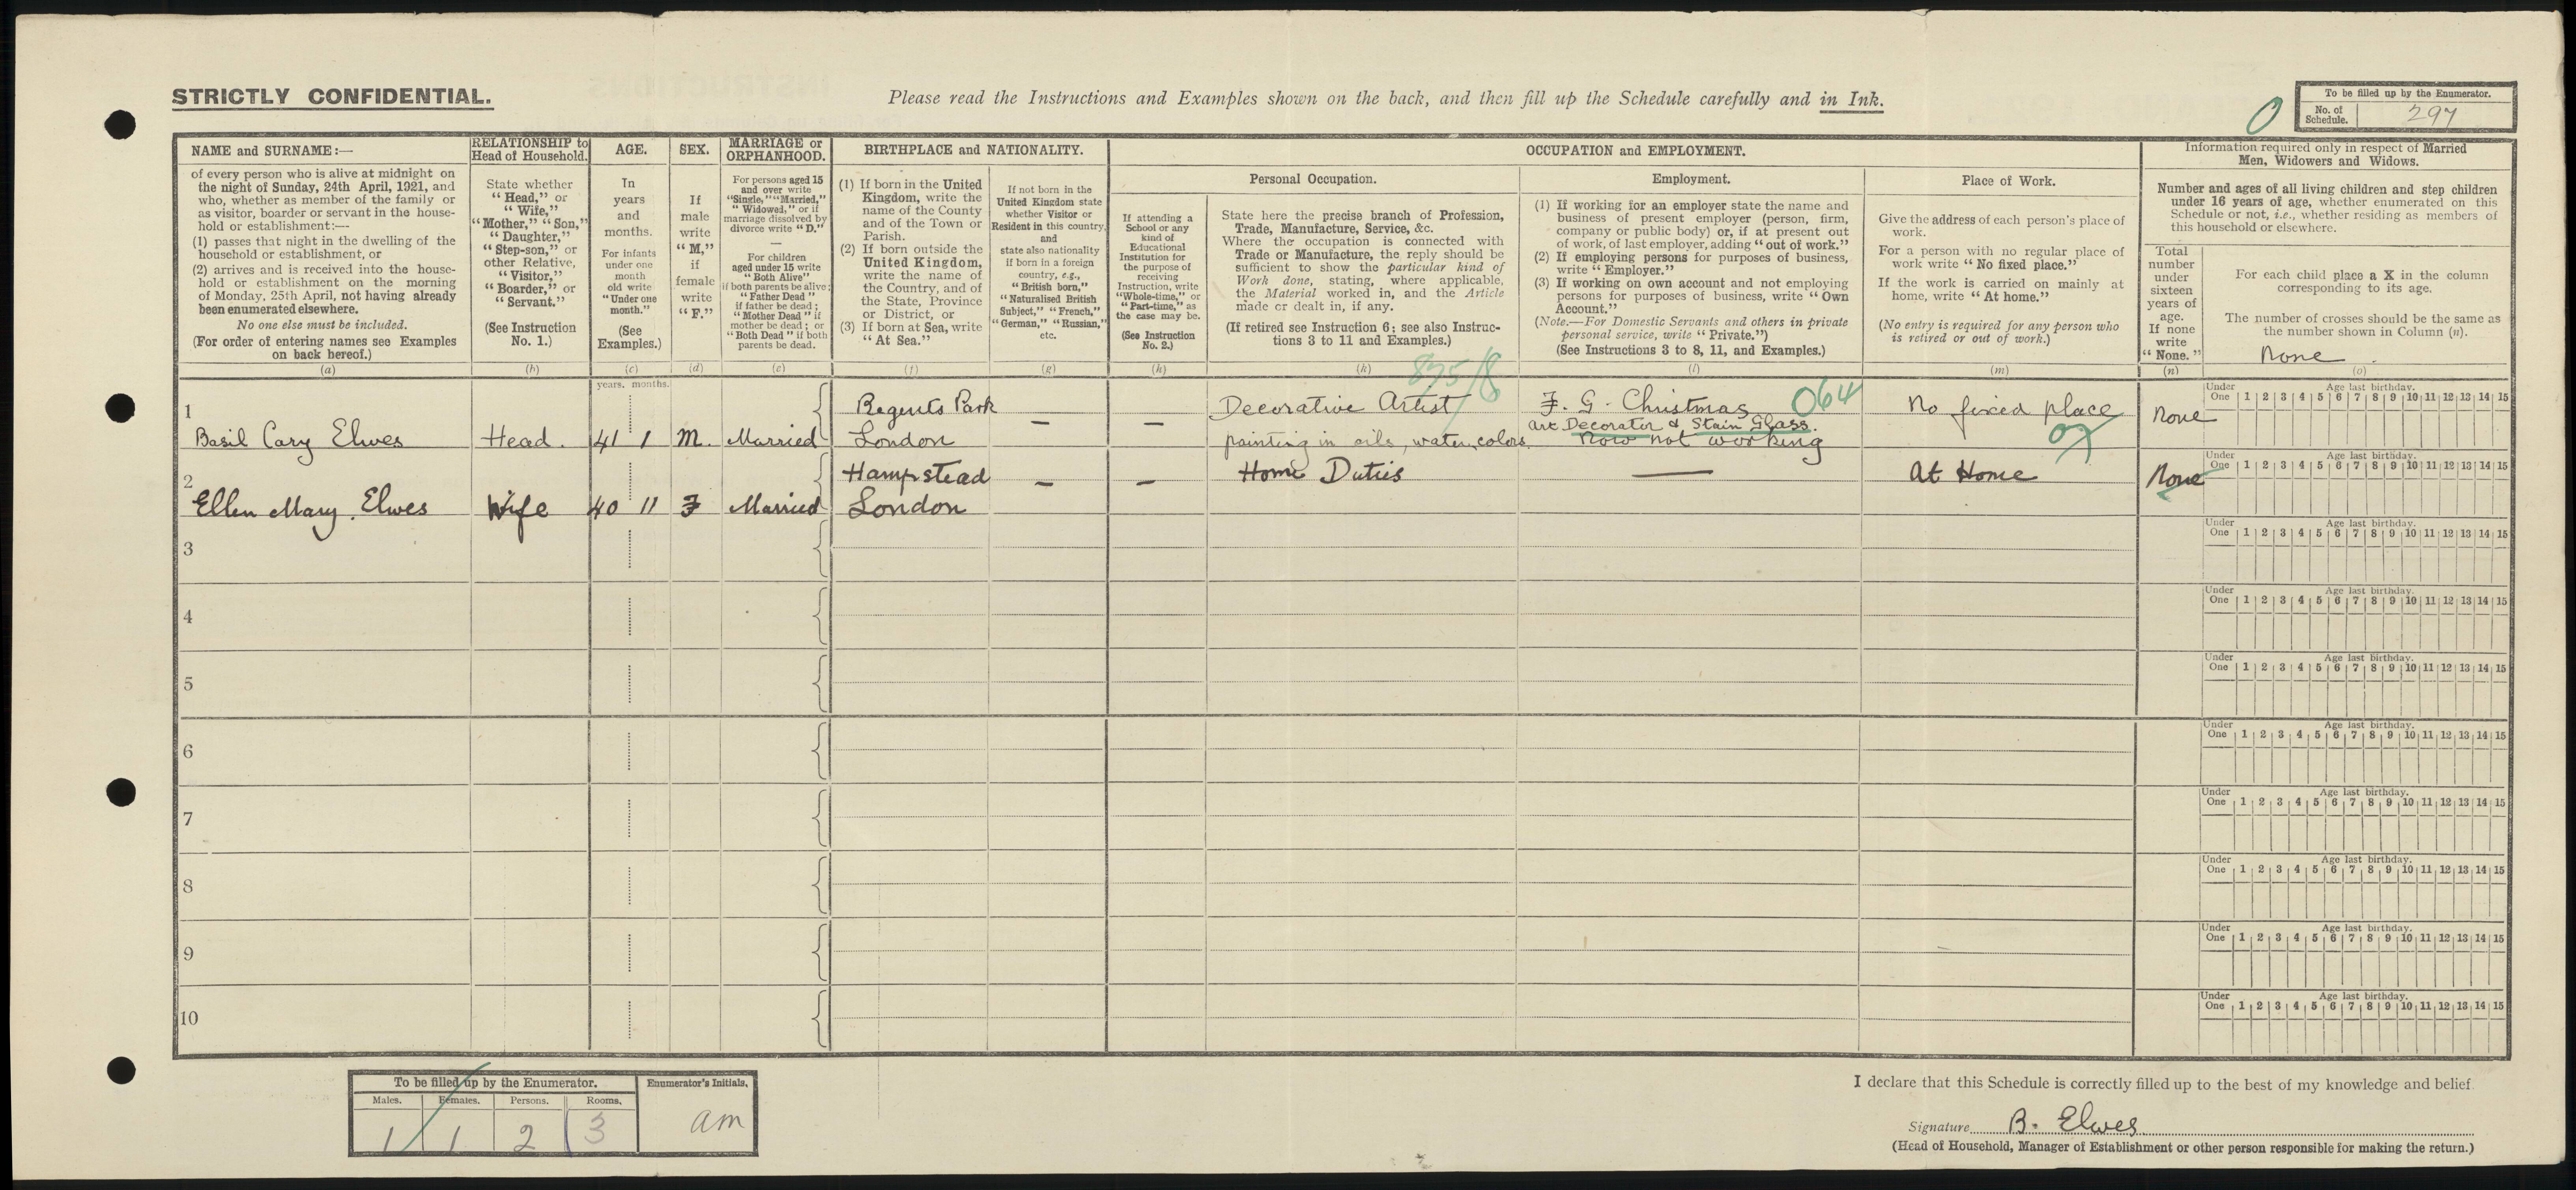 STRICTLY CONFIDENTIAL.
Please read the Instructions and Examples shown on the back, and then fill up the Schedule carefully and in Ink.
To be filled up by the Enumerator.
No. of Schedule. 297
0
NAME and SURNAME:—
of every person who is alive at midnight on
the night of Sunday, 24th April, 1921, and
who, whether as member of the family or
as visitor, boarder or servant in the house-
hold or establishment:—
(1) passes that night in the dwelling of the
household or establishment, or
(2) arrives and is received into the house-
hold or establishment on the morning
of Monday, 25th April, not having already
been enumerated elsewhere.
No one else must be included.
(For order of entering names see Examples
on back hereof.)
(a)
RELATIONSHIP to
Head of Household.
State whether
“Head,” or
“Wife,”
“Mother,” “Son,”
“Daughter,”
“Step-son,” or
other Relative,
“Visitor,”
“Boarder,” or
“Servant.”
(See Instruction
No. 1.)
(b)
AGE.
In
years
and
months.
For infants
under one
month
old write
“Under one
month.”
(See
Examples.)
(c)
SEX.
If
male
write
“M,”
if
female
write
“F.”
(d)
MARRIAGE or
ORPHANHOOD.
For persons aged 15
and over write
“Single,” “Married,”
“Widowed,” or if
marriage dissolved by
divorce write “D.”
—
For children
aged under 15 write
“Both Alive”
if both parents be alive;
“Father Dead”
if father be dead;
“Mother Dead” if
mother be dead; or
“Both Dead” if both
parents be dead.
(e)
BIRTHPLACE and NATIONALITY.
(1) If born in the United
Kingdom, write the
name of the County
and of the Town or
Parish.
(2) If born outside the
United Kingdom,
write the name of
the Country, and of
the State, Province
or District, or
(3) If born at Sea, write
“At Sea.”
(f)
If not born in the
United Kingdom state
whether Visitor or
Resident in this country,
and
state also nationality
if born in a foreign
country, e.g.,
“British born,”
“Naturalised British
Subject,” “French,”
“German,” “Russian,”
etc.
(g)
OCCUPATION and EMPLOYMENT.
If attending a
School or any
kind of
Educational
Institution for
the purpose of
receiving
Instruction, write
“Whole-time,” or
“Part-time,” as
the case may be.
(See Instruction
No. 2.)
(h)
Personal Occupation.
State here the precise branch of Profession,
Trade, Manufacture, Service, &c.
Where the occupation is connected with
Trade or Manufacture, the reply should be
sufficient to show the particular kind of
Work done, stating, where applicable,
the Material worked in, and the Article
made or dealt in, if any.
(If retired see Instruction 6; see also Instruc-
tions 3 to 11 and Examples.)
(k)
Employment.
(1) If working for an employer state the name and
business of present employer (person, firm,
company or public body) or, if at present out
of work, of last employer, adding “out of work.”
(2) If employing persons for purposes of business,
write “Employer.”
(3) If working on own account and not employing
persons for purposes of business, write “Own
Account.”
(Note.—For Domestic Servants and others in private
personal service, write “Private.”)
(See Instructions 3 to 8, 11, and Examples.)
(l)
Place of Work.
Give the address of each person's place of
work.
For a person with no regular place of
work write “No fixed place.”
If the work is carried on mainly at
home, write “At home.”
(No entry is required for any person who
is retired or out of work.)
(m)
Information required only in respect of Married
Men, Widowers and Widows.
Number and ages of all living children and step children
under 16 years of age, whether enumerated on this
Schedule or not, i.e., whether residing as members of
this household or elsewhere.
Total
number
under
sixteen
years of
age.
If none
write
“None.”
(n)
For each child place a X in the column
corresponding to its age.
The number of crosses should be the same as
the number shown in Column (n).
None.
(o)
years. months.
875/8
1
Basil Cary Elwes
Head.
41 1
M.
Married
Regents Park
London
—
—
Decorative Artist
painting in oils, water colors
F. G. Christmas
064
Art Decorator & Stain Glass.
now not working
No fixed place
None
Under One 1 2 3 4 5 6 7 8 9 10 11 12 13 14 15
Age last birthday.
2
Ellen Mary Elwes
Wife
40 11
F
Married
Hampstead
London
—
—
Home Duties
—
At Home
None
Under One 1 2 3 4 5 6 7 8 9 10 11 12 13 14 15
Age last birthday.
3
Under One 1 2 3 4 5 6 7 8 9 10 11 12 13 14 15
Age last birthday.
4
Under One 1 2 3 4 5 6 7 8 9 10 11 12 13 14 15
Age last birthday.
5
Under One 1 2 3 4 5 6 7 8 9 10 11 12 13 14 15
Age last birthday.
6
Under One 1 2 3 4 5 6 7 8 9 10 11 12 13 14 15
Age last birthday.
7
Under One 1 2 3 4 5 6 7 8 9 10 11 12 13 14 15
Age last birthday.
8
Under One 1 2 3 4 5 6 7 8 9 10 11 12 13 14 15
Age last birthday.
9
Under One 1 2 3 4 5 6 7 8 9 10 11 12 13 14 15
Age last birthday.
10
Under One 1 2 3 4 5 6 7 8 9 10 11 12 13 14 15
Age last birthday.
To be filled up by the Enumerator.
Enumerator's Initials.
Males. Females. Persons. Rooms.
1 1 2 3
am
I declare that this Schedule is correctly filled up to the best of my knowledge and belief
Signature B. Elwes
(Head of Household, Manager of Establishment or other person responsible for making the return.)